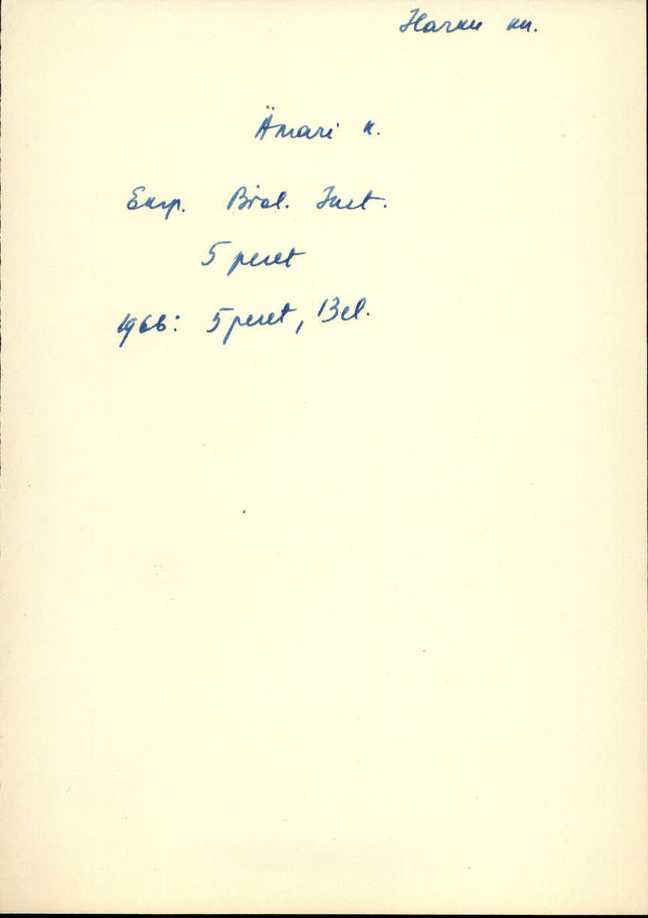 Harku kn.
Ämari k.
Eksp. Biol. Inst.
5 peret
1966: 5 peret, 13 el.